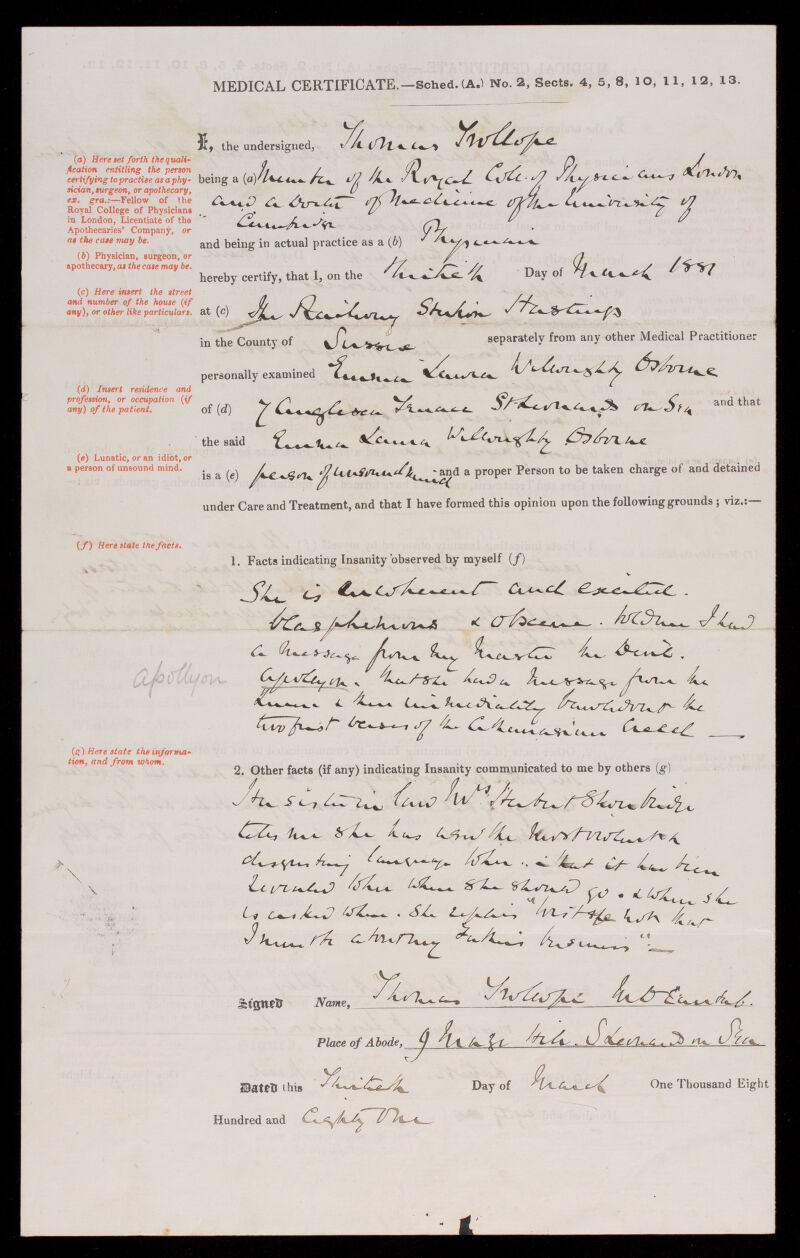 MEDICAL CERTIFICATE.—Sched. (A.) No. 2, Sects. 4, 5, 8, 10, 11, 12, 13.
I, the undersigned, Thomas Trollope
(a) Here set forth the quali-
fication entitling the person
certifying to practise as a phy-
sician, surgeon, or apothecary,
ex. gra.:—Fellow of the
Royal College of Physicians
in London, Licentiate of the
Apothecaries' Company, or
as the case may be.
being a (a) Member of the Royal Coll. of Physicians London
and a Doctor of Medicine of the University of
Cambridge
and being in actual practice as a (b) Physician
(b) Physician, surgeon, or
apothecary, as the case may be.
hereby certify, that I, on the Thirtieth Day of March 1881
(c) Here insert the street
and number of the house (if
any), or other like particulars.
at (c) The Railway Station Hastings
in the County of Sussex separately from any other Medical Practitioner
personally examined Emma Laura Willoughby Osborne
(d) Insert residence and
profession, or occupation (if
any) of the patient.
of (d) 7 Anglesea Terrace St Leonards on Sea and that
the said Emma Laura Willoughby Osborne
(e) Lunatic, or an idiot, or
a person of unsound mind.
is a (e) person of unsound mind and a proper Person to be taken charge of and detained
under Care and Treatment, and that I have formed this opinion upon the following grounds; viz.:—
(f) Here state the facts.
1. Facts indicating Insanity observed by myself (f)
She is incoherent and excited.
blasphemous & obscene. told me I had
a message from my Master the Devil.
Apollyon. that she had a message from the
Queen & then immediately bawled out the
two first verses of the Athanasian Creed —
apollyon
(g) Here state the informa-
tion, and from whom.
2. Other facts (if any) indicating Insanity communicated to me by others (g)
Her sister in law Mrs Herbert
tells me she has used the most violent &
disgusting language to her. & that it has been
revealed to her where she should go. & when she
is asked where. She replies "wist ye not that
I must be about my Father's business" —
Signed Name, Thomas Trollope MD Cantab.
Place of Abode, 9 Maze Hill. St Leonards on Sea
Dated this Thirtieth Day of March One Thousand Eight
Hundred and Eighty One